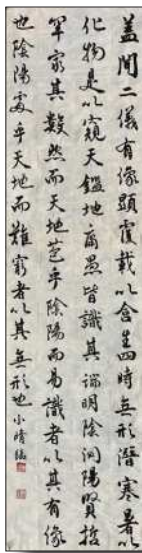 蓋聞二儀有像顯覆載以含生四時無形潛寒暑以
化物是以窺天鑑地庸愚皆識其端明陰洞陽賢哲
罕窮其數然而天地苞乎陰陽而易識者以其有像
也陰陽處乎天地而難窮者以其無形也小晴